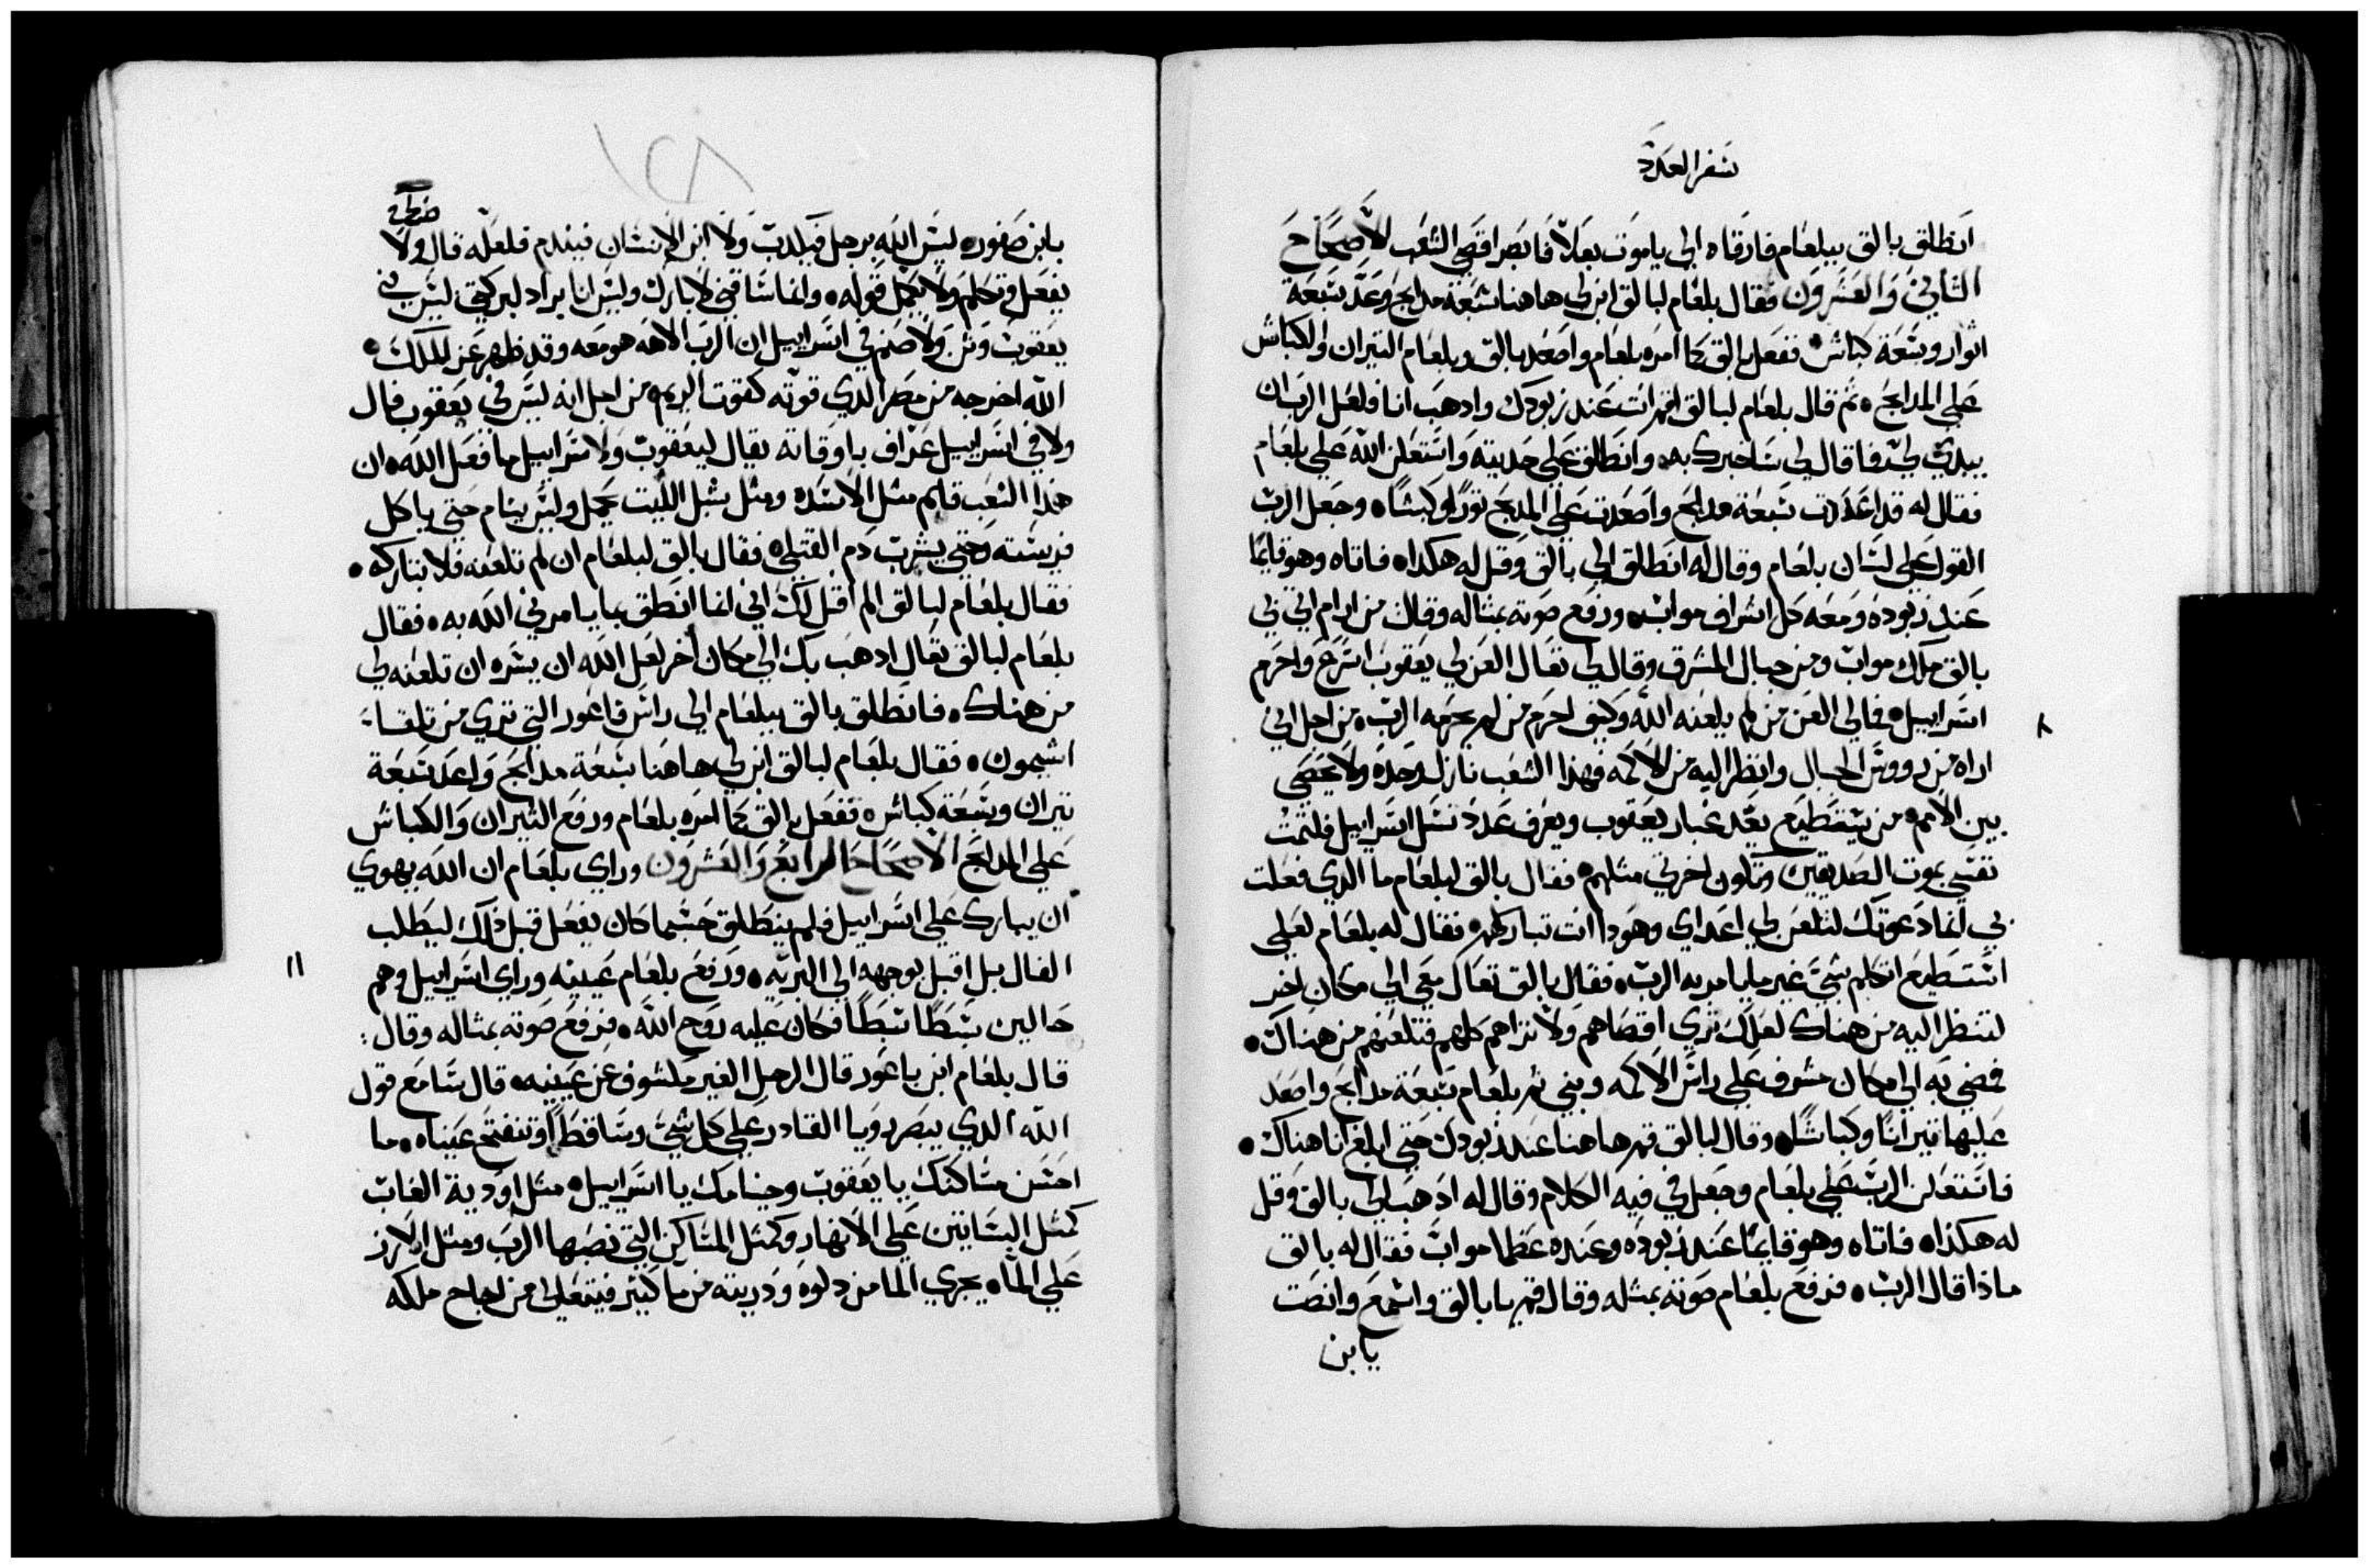 سفر العدد
انطلق بالق ببلعام فارقاه الى ياموت بعلا فابصر اقصى الشعب الاصحاح
الثالث والعشرون فقال بلعام لبالق ابن لي هاهنا سبعة مدابح وعد سبعة
اثوار وسبعة كباش ففعل بالق كما امره بلعام واصعد بالق وبلعام التيران والكباش
على المدابح ثم قال بلعام لبالق قم انت عند زبودك وادهب انا فلعل الرب ان
يبدي لي فما قال لي ساخبرك به وانطلق على جديته واستعلن الله على بلعام
فقال له قد اعددت سبعة مدابح واصعدت على المدبح تورا وكبشا وجعل الرب
القول على لسان بلعام وقال له انطلق الى بالق وقل له هكدا فاتاه وهو قايما
عند زبوده ومعه كل اشراف مواب ورفع صوته بمثاله وقال من ارام اتي بي
بالق ملك مواب ومن جبال المشرق وقال لي تعال العن لي يعقوب اسرع واحرم
اسراييل فما لي العن من لم يلعنه الله وكيف احرم من لم يحرمه الرب من اجل اني
اراه من رووس الجبال وانظر اليه من الاكمه فهذا الشعب نازل وحده ولا يحصى
بين الامم من يستطيع يعد غبار يعقوب ويعرف عدد نسل اسراييل فلتمت
نفسي بموت الصديقين وتكون اخرتي مثلهم فقال بالق لبلعام ما الدي فعلت
بي انما دعوتك لتلعن لي اعداي وهودا انت تباركهم فقال له بلعام لعلي
استطيع اتكلم بشي غير ما يامر به الرب فقال بالق تعال معي الى مكان اخر
لتنظر اليه من هناك لعلك ترى اقصاهم ولا تراهم كلهم فتلعنهم من هناك
فمضى به الى مكان مشوف على راس الاكمه وبنى تم بلعام سبعة مدابح واصعد
عليها تيرانا وكباشا وقال لبالق قم هاهنا عند زبودك حتى ابلغ انا هناك
فاستعلن الرب على بلعام وجعل في فيه الكلام وقال له ادهب الى بالق وقل
له هكدا فاتاه وهو قايما عند زبوده وعنده عظما مواب فقال له بالق
مادا قال الرب فرفع بلعام صوته بمثله وقال قم يا بالق واسمع وانصت
يابن
يابن صفور ليس الله برجل فيكدب ولا ابن الانسان فيندم فلعله قال ولا
يفعل وتكلم ولا يكمل قوله وانما ساقني لابارك وليس انا براد لبركتي ليس في
يعقوب وتن ولا صنم في اسراييل ان الرب الاهه هو معه وقد ظهر عز الملك
الله اخرجه من مصر الدي قوته كقوت الريم من اجل انه ليس في يعقوب فال
ولا في اسراييل عراف باوقاته يقال ليعقوب ولاسراييل ما فعل الله ان
هدا الشعب قايم مثل الاسد ومثل شبل الليت يحمل وليس ينام حتى ياكل
فريسته وحتى يشرب دم القتيل فقال بالق لبلعام ان لم تلعنه فلا تباركه
فقال بلعام لبالق الم اقل لك اني انما انطق بما يامرني الله به فقال
بلعام لبالق تعال ادهب بك الى مكان اخر لعل الله ان يسره ان تلعنه لي
من هناك فانطلق بالق ببلعام الى راس فاغور التي ترى من تلقا
اشيمون فقال بلعام لبالق ابن لي هاهنا سبعة مدابح واعد سبعة
تيران وسبعة كباش ففعل بالق كما امره بلعام ورفع التيران والكباش
على المدابح الاصحاح الرابع والعشرون وراي بلعام ان الله يهوي
ان يبارك على اسراييل فلم ينطلق حسبما كان يفعل قبل دلك ليطلب
الفال بل اقبل بوجهه الى البريه ورفع بلعام عينيه وراي اسراييل وهم
حالين سبطا سبطا فكان عليه روح الله فرفع صوته بمثاله وقال
قال بلعام ابن باعور قال الرجل الغير مكشوف عن عينيه قال سامع قول
الله الدي يبصر رويا القادر على كل شي وساقطا وتنفتح عيناه ما
احسن مساكنك يا يعقوب وخيامك يا اسراييل متل اودية الغاب
كمتل البساتين على الانهار وكمتل المساكن التي نصبها الرب ومتل الارز
على الماه يجري الما من دلوه ودريته من ما كتير فيتعالى من اجاج ملكه